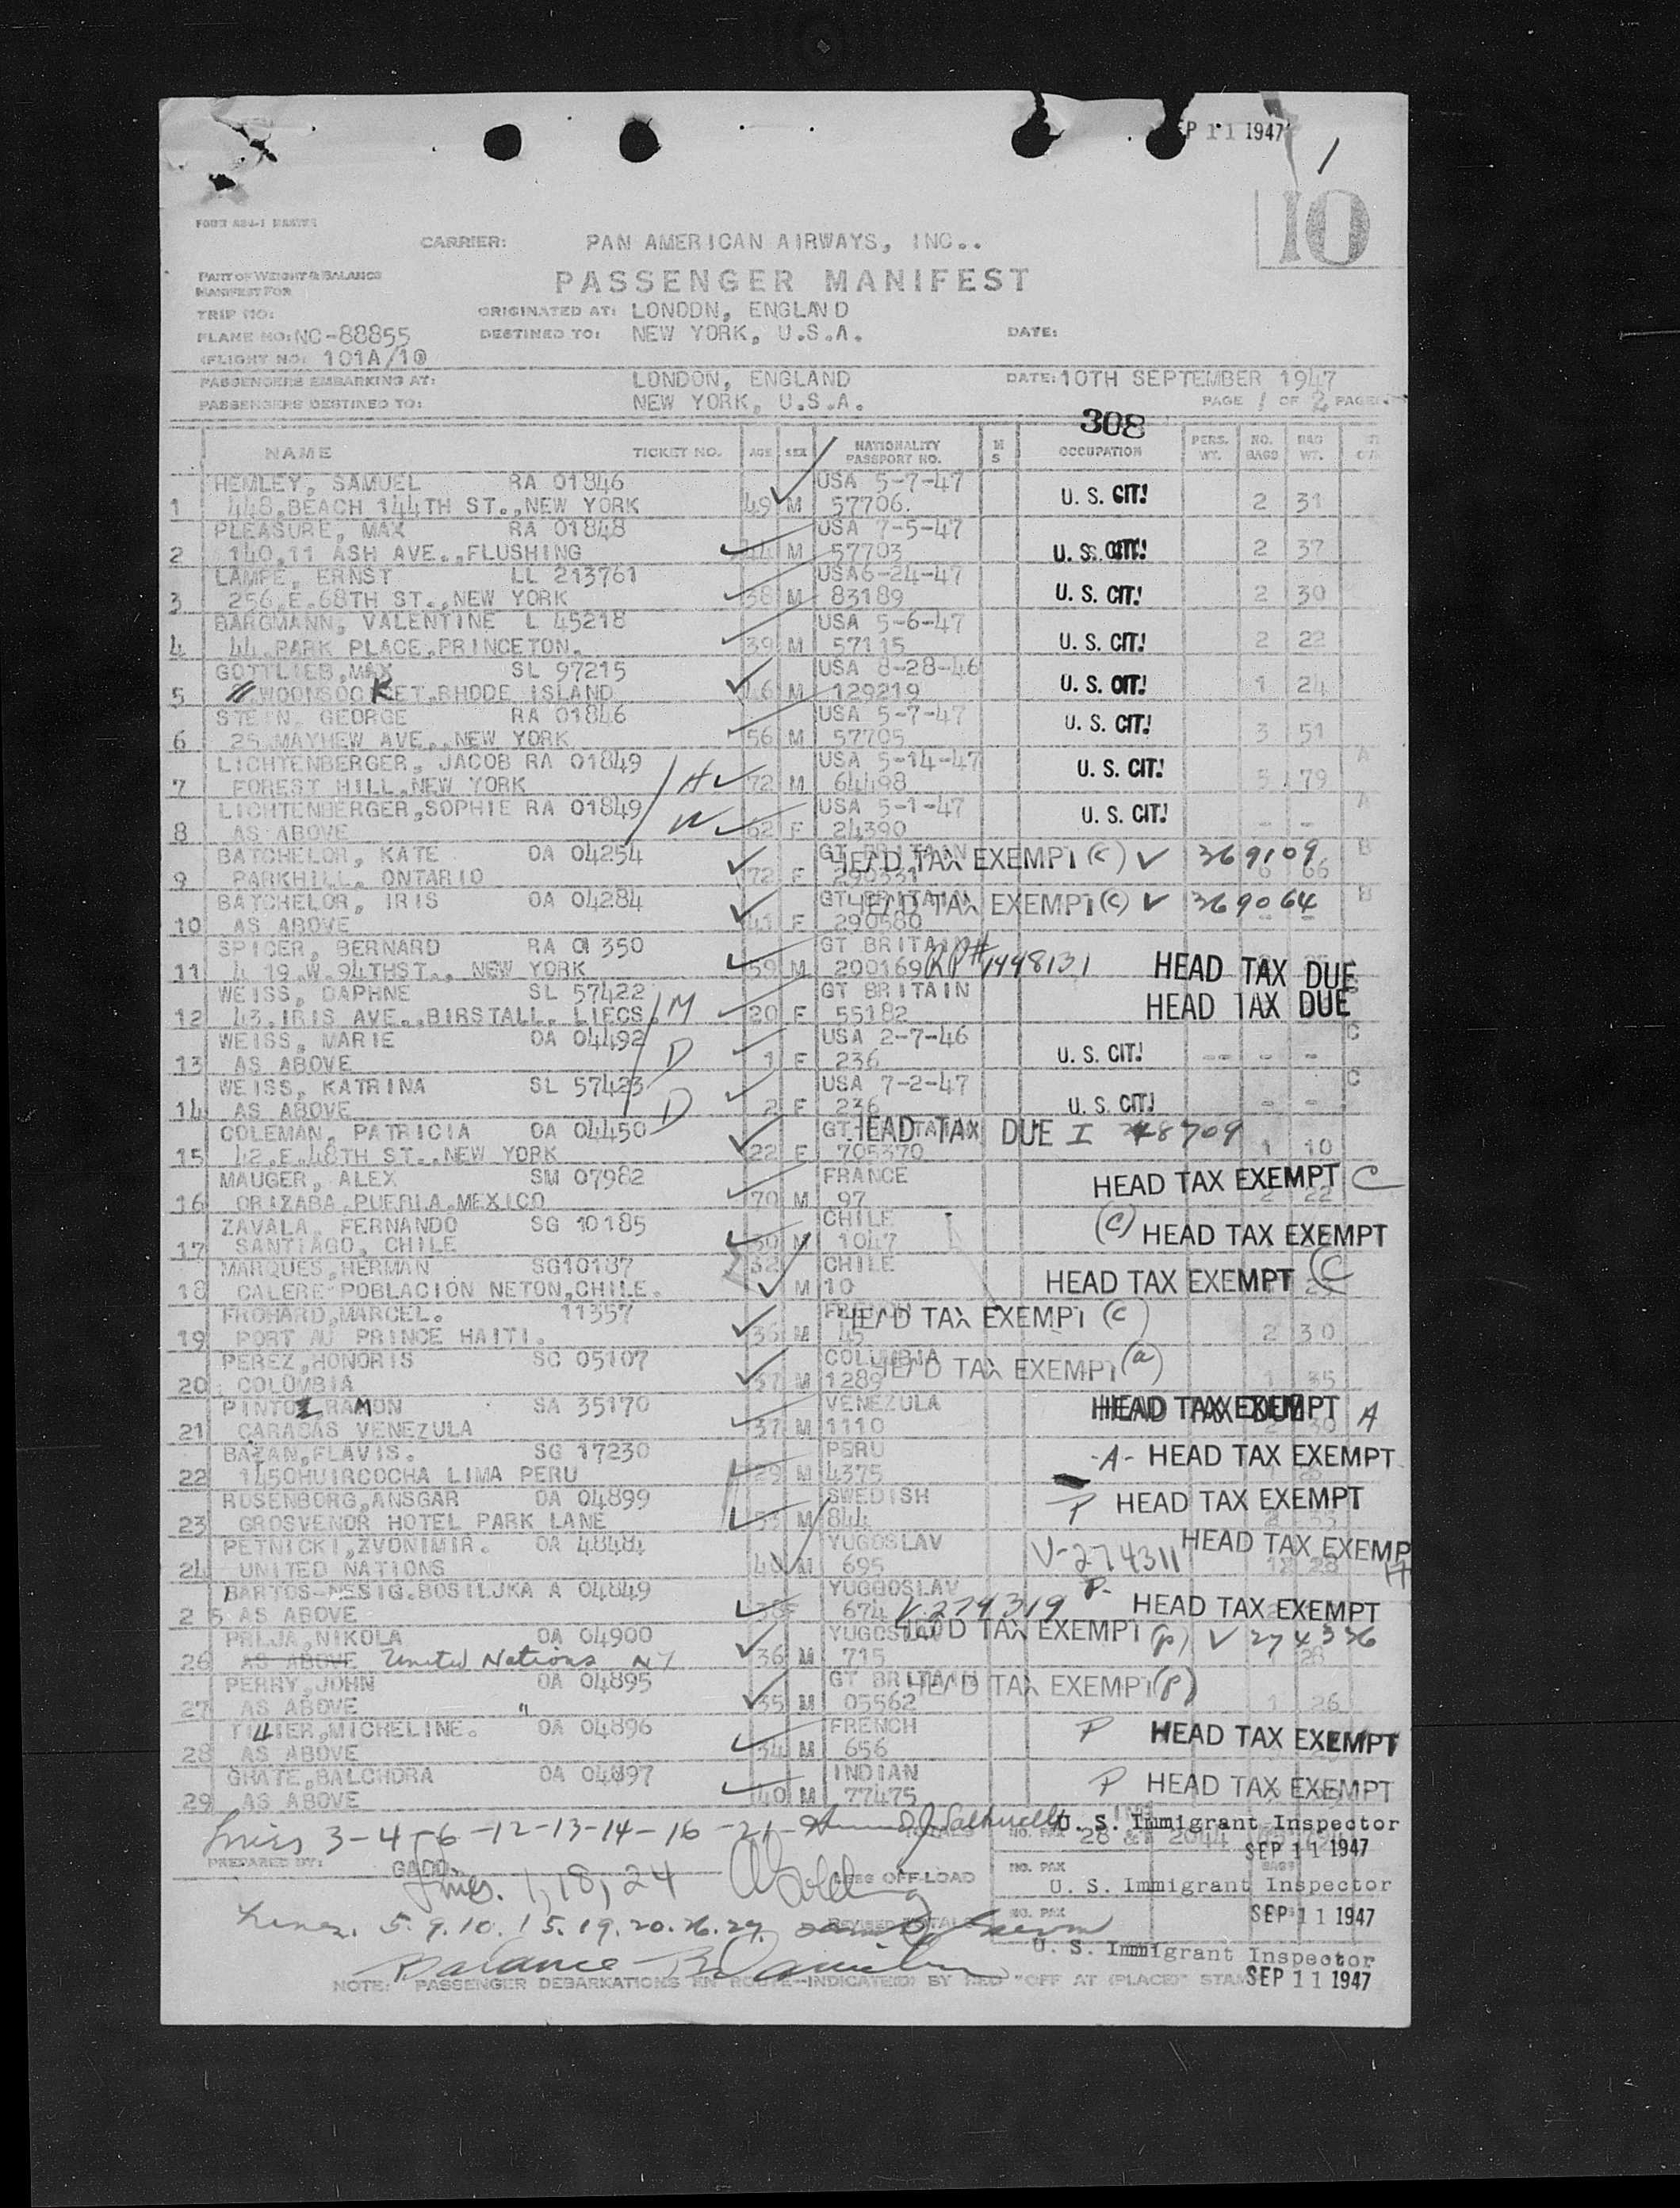 EP 11 1947
1
10
FORM ABJ-1 MASTER
CARRIER: PAN AMERICAN AIRWAYS, INC..
PART OF WEIGHT & BALANCE
MANIFEST FOR
PASSENGER MANIFEST
TRIP NO: ORIGINATED AT: LONDON, ENGLAND
PLANE NO: NC-88855 DESTINED TO: NEW YORK, U.S.A. DATE:
FLIGHT NO: 101A/10
PASSENGERS EMBARKING AT: LONDON, ENGLAND DATE: 10TH SEPTEMBER 1947
PASSENGERS DESTINED TO: NEW YORK, U.S.A. PAGE 1 OF 2 PAGE
308
NAME TICKET NO. AGE SEX NATIONALITY PASSPORT NO. M S OCCUPATION PERS. WT. NO. BAGS BAG WT.
HEMLEY, SAMUEL RA 01846 USA 5-7-47
1 448.BEACH 144TH ST.,NEW YORK 49 M 57706. U. S. CIT! 2 31
PLEASURE, MAX RA 01848 USA 7-5-47
2 140,11 ASH AVE.,FLUSHING 44 M 57703 U. S. CIT! 2 37
LAMPE, ERNST LL 213761 USA6-24-47
3 256.E.68TH ST.,NEW YORK 38 M 83189 U. S. CIT! 2 30
BARGMANN, VALENTINE L 45218 USA 5-6-47
4 44.PARK PLACE.PRINCETON. 39 M 57115 U. S. CIT! 2 22
GOTTLIEB,MAX SL 97215 USA 8-28-46
5 WOONSOCKET.RHODE ISLAND 46 M 129219 U. S. CIT! 1 24
STEIN, GEORGE RA 01846 USA 5-7-47
6 25.MAYHEW AVE.,NEW YORK 56 M 57705 U. S. CIT! 3 51
LICHTENBERGER, JACOB RA 01849 USA 5-14-47 A
7 FOREST HILL.NEW YORK H 72 M 64498 U. S. CIT! 5 79
LICHTENBERGER,SOPHIE RA 01849 USA 5-1-47 A
8 AS ABOVE W 62 F 24390 U. S. CIT! - -
BATCHELOR, KATE OA 04254 GT BRITAIN HEAD TAX EXEMPT (C) V 369109 B
9 PARKHILL. ONTARIO 72 F 290331 6 66
BATCHELOR, IRIS OA 04284 GT BRITAIN HEAD TAX EXEMPT (C) V 369064 B
10 AS ABOVE 41 F 290580 - -
SPICER, BERNARD RA 01350 GT BRITAIN
11 4 19.W.94THST., NEW YORK 59 M 200169 RP# 1448131 HEAD TAX DUE
WEISS, DAPHNE SL 57422 GT BRITAIN HEAD TAX DUE
12 43.IRIS AVE.,BIRSTALL. LIECS. M 20 F 55182
WEISS, MARIE OA 04492 USA 2-7-46 C
13 AS ABOVE D 1 F 236 U. S. CIT! -- - -
WEISS, KATRINA SL 57423 USA 7-2-47 C
14 AS ABOVE D 2 F 236 U. S. CIT! - -
COLEMAN, PATRICIA OA 04450 HEAD TAX DUE I 48709
15 42.E.48TH ST.,NEW YORK 22 F 705370 1 10
MAUGER, ALEX SM 07982 FRANCE HEAD TAX EXEMPT C
16 ORIZABA.PUEBLA.MEXICO 70 M 97 2 22
ZAVALA, FERNANDO SG 10185 CHILE (C) HEAD TAX EXEMPT
17 SANTIAGO, CHILE 30 M 1047
MARQUES,HERMAN SG10187 32 CHILE HEAD TAX EXEMPT C
18 CALERE POBLACION NETON,CHILE. M 10
FROHARD,MARCEL. 11357 FRENCH HEAD TAX EXEMPT (C)
19 PORT AU PRINCE HAITI. 36 M 45 2 30
PEREZ,HONORIS SC 05107 COLUMBIA HEAD TAX EXEMPT (a)
20 COLOMBIA 37 M 1289 1 35
PINTO RAMON SA 35170 VENEZULA HEAD TAX EXEMPT A
21 CARACAS VENEZULA 37 M 1110 30
BAZAN,FLAVIS. SG 17230 PERU -A- HEAD TAX EXEMPT
22 1450HUIRCOCHA LIMA PERU 29 M 4375
ROSENBORG,ANSGAR OA 04899 SWEDISH P HEAD TAX EXEMPT
23 GROSVENOR HOTEL PARK LANE 53 M 844
PETNICKI,ZVONIMIR. OA 48484 YUGOSLAV V-274311 HEAD TAX EXEMP
24 UNITED NATIONS 40 M 695 28
BARTOS-NESIG.BOSILJKA A 04849 YUGOOSLAV P-
2 5 AS ABOVE 38 F 674 V 274319 HEAD TAX EXEMPT
PRLJA,NIKOLA OA 04900 YUGOSLAV HEAD TAX EXEMPT (P) V 274336
26 AS ABOVE United Nations NY 36 M 715 1 28
PERRY,JOHN OA 04895 GT BRITAIN HEAD TAX EXEMPT (P)
27 AS ABOVE " 35 M 05562 1 26
TILLIER,MICHELINE. OA 04896 FRENCH P HEAD TAX EXEMPT
28 AS ABOVE 34 M 656
GHATE,BALCHDRA OA 04897 INDIAN P HEAD TAX EXEMPT
29 AS ABOVE 40 M 77475
lines 3-4-6-12-13-14-16-21- TOTALS NO. PAX 28 & 1 2044 U. S. Immigrant Inspector
SEP 11 1947
PREPARED BY: GADD.
Lines. 1, 18, 24 LESS OFF-LOAD NO. PAX BAGS
U. S. Immigrant Inspector
Lines. 5.9.10.15.19.20.26.27. REVISED TOTALS NO. PAX SEP 11 1947
U. S. Immigrant Inspector
Balance
NOTE: PASSENGER DEBARKATIONS EN ROUTE-INDICATED BY RED "OFF AT (PLACE)" STAM SEP 11 1947